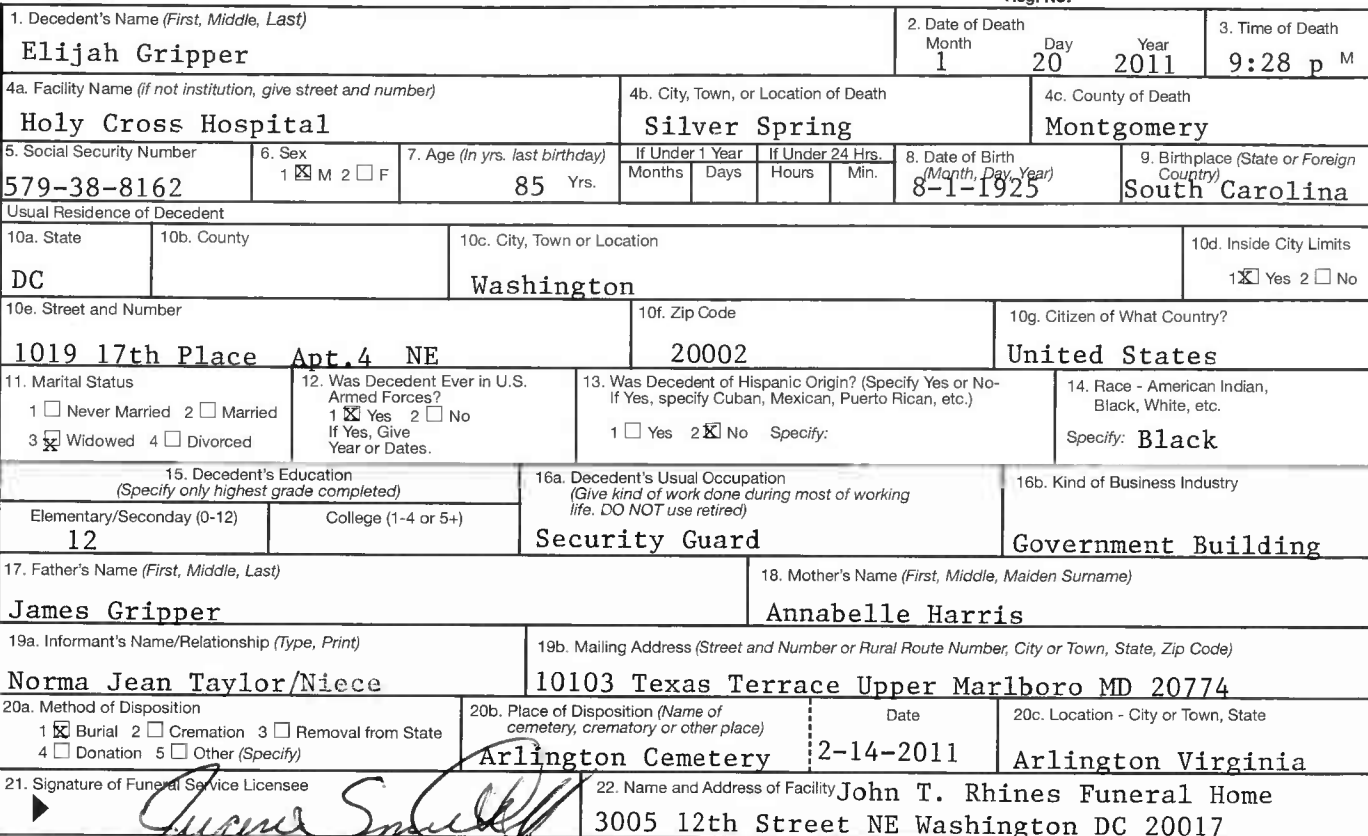 1. Decedent's Name (First, Middle, Last)
Elijah Gripper
2. Date of Death
Month Day Year
1 20 2011
3. Time of Death
9:28 p M
4a. Facility Name (if not institution, give street and number)
Holy Cross Hospital
4b. City, Town, or Location of Death
Silver Spring
4c. County of Death
Montgomery
5. Social Security Number
579-38-8162
6. Sex
1 ☒ M 2 ☐ F
7. Age (In yrs. last birthday)
85 Yrs.
If Under 1 Year
Months Days
If Under 24 Hrs.
Hours Min.
8. Date of Birth
(Month, Day, Year)
8-1-1925
9. Birthplace (State or Foreign
Country)
South Carolina
Usual Residence of Decedent
10a. State
DC
10b. County
10c. City, Town or Location
Washington
10d. Inside City Limits
1 ☒ Yes 2 ☐ No
10e. Street and Number
1019 17th Place Apt.4 NE
10f. Zip Code
20002
10g. Citizen of What Country?
United States
11. Marital Status
1 ☐ Never Married 2 ☐ Married
3 ☒ Widowed 4 ☐ Divorced
12. Was Decedent Ever in U.S.
Armed Forces?
1 ☒ Yes 2 ☐ No
If Yes, Give
Year or Dates.
13. Was Decedent of Hispanic Origin? (Specify Yes or No-
If Yes, specify Cuban, Mexican, Puerto Rican, etc.)
1 ☐ Yes 2 ☒ No Specify:
14. Race - American Indian,
Black, White, etc.
Specify: Black
15. Decedent's Education
(Specify only highest grade completed)
Elementary/Seconday (0-12)
12
College (1-4 or 5+)
16a. Decedent's Usual Occupation
(Give kind of work done during most of working
life. DO NOT use retired)
Security Guard
16b. Kind of Business Industry
Government Building
17. Father's Name (First, Middle, Last)
James Gripper
18. Mother's Name (First, Middle, Maiden Surname)
Annabelle Harris
19a. Informant's Name/Relationship (Type, Print)
Norma Jean Taylor/Niece
19b. Mailing Address (Street and Number or Rural Route Number, City or Town, State, Zip Code)
10103 Texas Terrace Upper Marlboro MD 20774
20a. Method of Disposition
1 ☒ Burial 2 ☐ Cremation 3 ☐ Removal from State
4 ☐ Donation 5 ☐ Other (Specify)
20b. Place of Disposition (Name of
cemetery, crematory or other place)
Arlington Cemetery
Date
2-14-2011
20c. Location - City or Town, State
Arlington Virginia
21. Signature of Funeral Service Licensee
22. Name and Address of Facility John T. Rhines Funeral Home
3005 12th Street NE Washington DC 20017